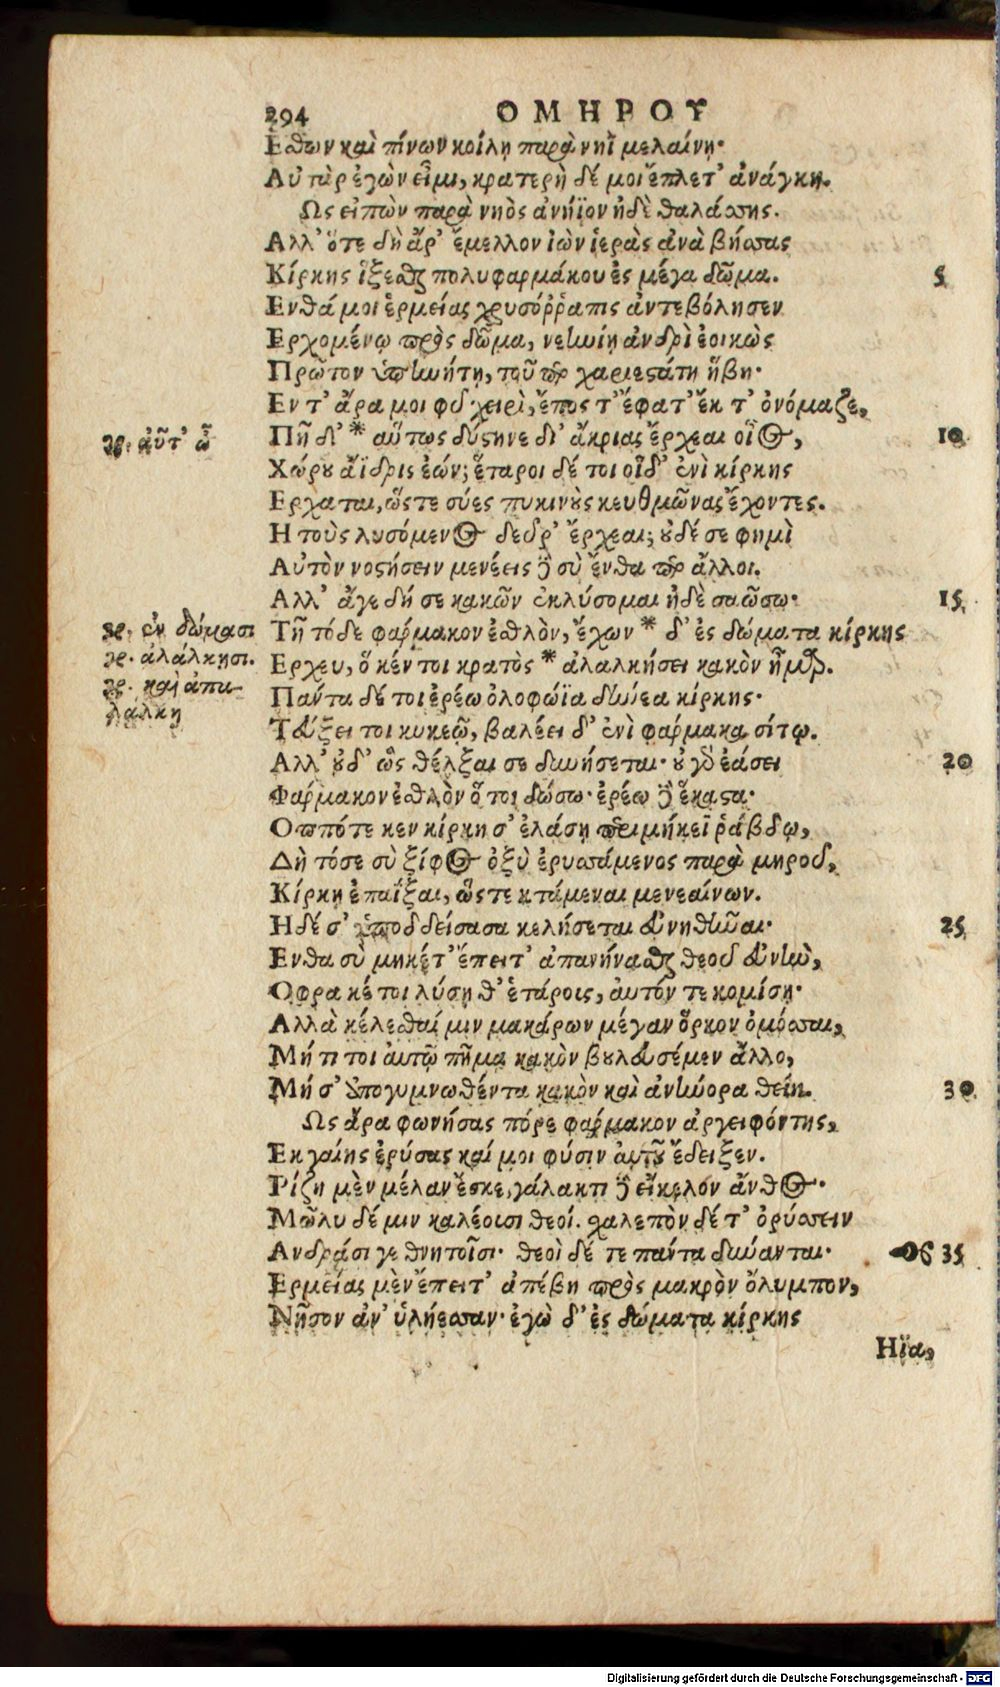 294 ΟΜΗΡΟΥ
Εσθων καὶ πίνων κοίλῃ παρὰ νηῒ μελαίνῃ·
Αὐτὰρ ἐγὼν εἶμι, κρατερὴ δέ μοι ἔπλετ' ἀνάγκη.
Ως εἰπὼν παρὰ νηὸς ἀνήϊον ἠδὲ θαλάσσης.
Αλλ' ὅτε δὴ ἄρ' ἔμελλον ἰὼν ἱερὰς ἀνὰ βήσσας
Κίρκης ἵξεσθαι πολυφαρμάκου ἐς μέγα δῶμα. 5
Ενθά μοι ἑρμείας χρυσόῤῥαπις ἀντεβόλησεν
Ερχομένῳ πρὸς δῶμα, νεηνίῃ ἀνδρὶ ἐοικὼς
Πρῶτον ὑπηνήτῃ, τοῦπερ χαριεστάτη ἥβη·
Εν τ' ἄρα μοι φῦ χειρὶ, ἔπος τ' ἔφατ' ἔκ τ' ὀνόμαζε,
γρ. αὖτ' ὦ Πῆ δὶ' * αὕτως δύστηνε δι' ἄκριας ἔρχεαι οἶος, 10
Χώρου ἄϊδρις ἐών; ἕταροι δέ τοι οἷδ' ἐνὶ κίρκης
Ερχαται, ὥστε σύες πυκινοὺς κευθμῶνας ἔχοντες.
Η τοὺς λυσόμενος δεῦρ' ἔρχεαι; οὐδέ σε φημὶ
Αὐτὸν νοστήσειν μενέεις δὲ σὺ ἔνθα περ ἄλλοι.
Αλλ' ἄγε δή σε κακῶν ἐκλύσομαι ἠδὲ σαώσω· 15
γρ. ἐν δώμασι Τῆ τόδε φάρμακον ἐσθλὸν, ἔχων * δ' ἐς δώματα κίρκης
γρ. ἀλάλκησι. Ερχευ, ὅ κέν τοι κρατὸς * ἀλαλκήσει κακὸν ἦμαρ.
γρ. καὶ ἀπα- Πάντα δέ τοι ἐρέω ὀλοφώϊα δήνεα κίρκης·
λάλκῃ
Τεύξει τοι κυκεῶ, βαλέει δ' ἐνὶ φάρμακα σίτῳ.
Αλλ' οὐδ' ὣς θέλξαι σε δυνήσεται· οὐ γὰρ ἐάσει 20
Φάρμακον ἐσθλὸν ὅ τοι δώσω· ἐρέω δὲ ἕκαστα·
Οππότε κεν κίρκη σ' ἐλάσῃ περιμήκεϊ ῥάβδῳ,
Δὴ τόσε σὺ ξίφος ὀξὺ ἐρυσσάμενος παρὰ μηροῦ,
Κίρκῃ ἐπαΐξαι, ὥστε κτάμεναι μενεαίνων.
Η δέ σ' ὑποδδείσασα κελήσεται εὐνηθῆναι· 25
Ενθα σὺ μηκέτ' ἔπειτ' ἀπανήνασθαι θεοῦ εὐνὴν,
Οφρα κέ τοι λύσῃ θ' ἑτάροις, αὐτόν τε κομίσῃ·
Αλλὰ κέλεσθαί μιν μακάρων μέγαν ὅρκον ὀμόσσαι,
Μή τι τοι αὐτῷ πῆμα κακὸν βουλευσέμεν ἄλλο,
Μή σ' ἀπογυμνωθέντα κακὸν καὶ ἀνήνορα θείη. 30
Ως ἄρα φωνήσας πόρε φάρμακον ἀργειφόντης,
Εκ γαίης ἐρύσας καί μοι φύσιν αὐτοῦ ἔδειξεν.
Ρίζη μὲν μέλαν ἔσκε, γάλακτι δὲ εἴκελον ἄνθος·
Μῶλυ δέ μιν καλέουσι θεοί. χαλεπὸν δέ τ' ὀρύσσειν
Ανδράσι γε θνητοῖσι· θεοὶ δέ τε πάντα δύνανται. 35
Ερμείας μὲν ἔπειτ' ἀπέβη πρὸς μακρὸν ὄλυμπον,
Νῆσον ἀν' ὑλήεσσαν· ἐγὼ δ' ἐς δώματα κίρκης
Ηϊα,
Digitalisierung gefördert durch die Deutsche Forschungsgemeinschaft - DFG